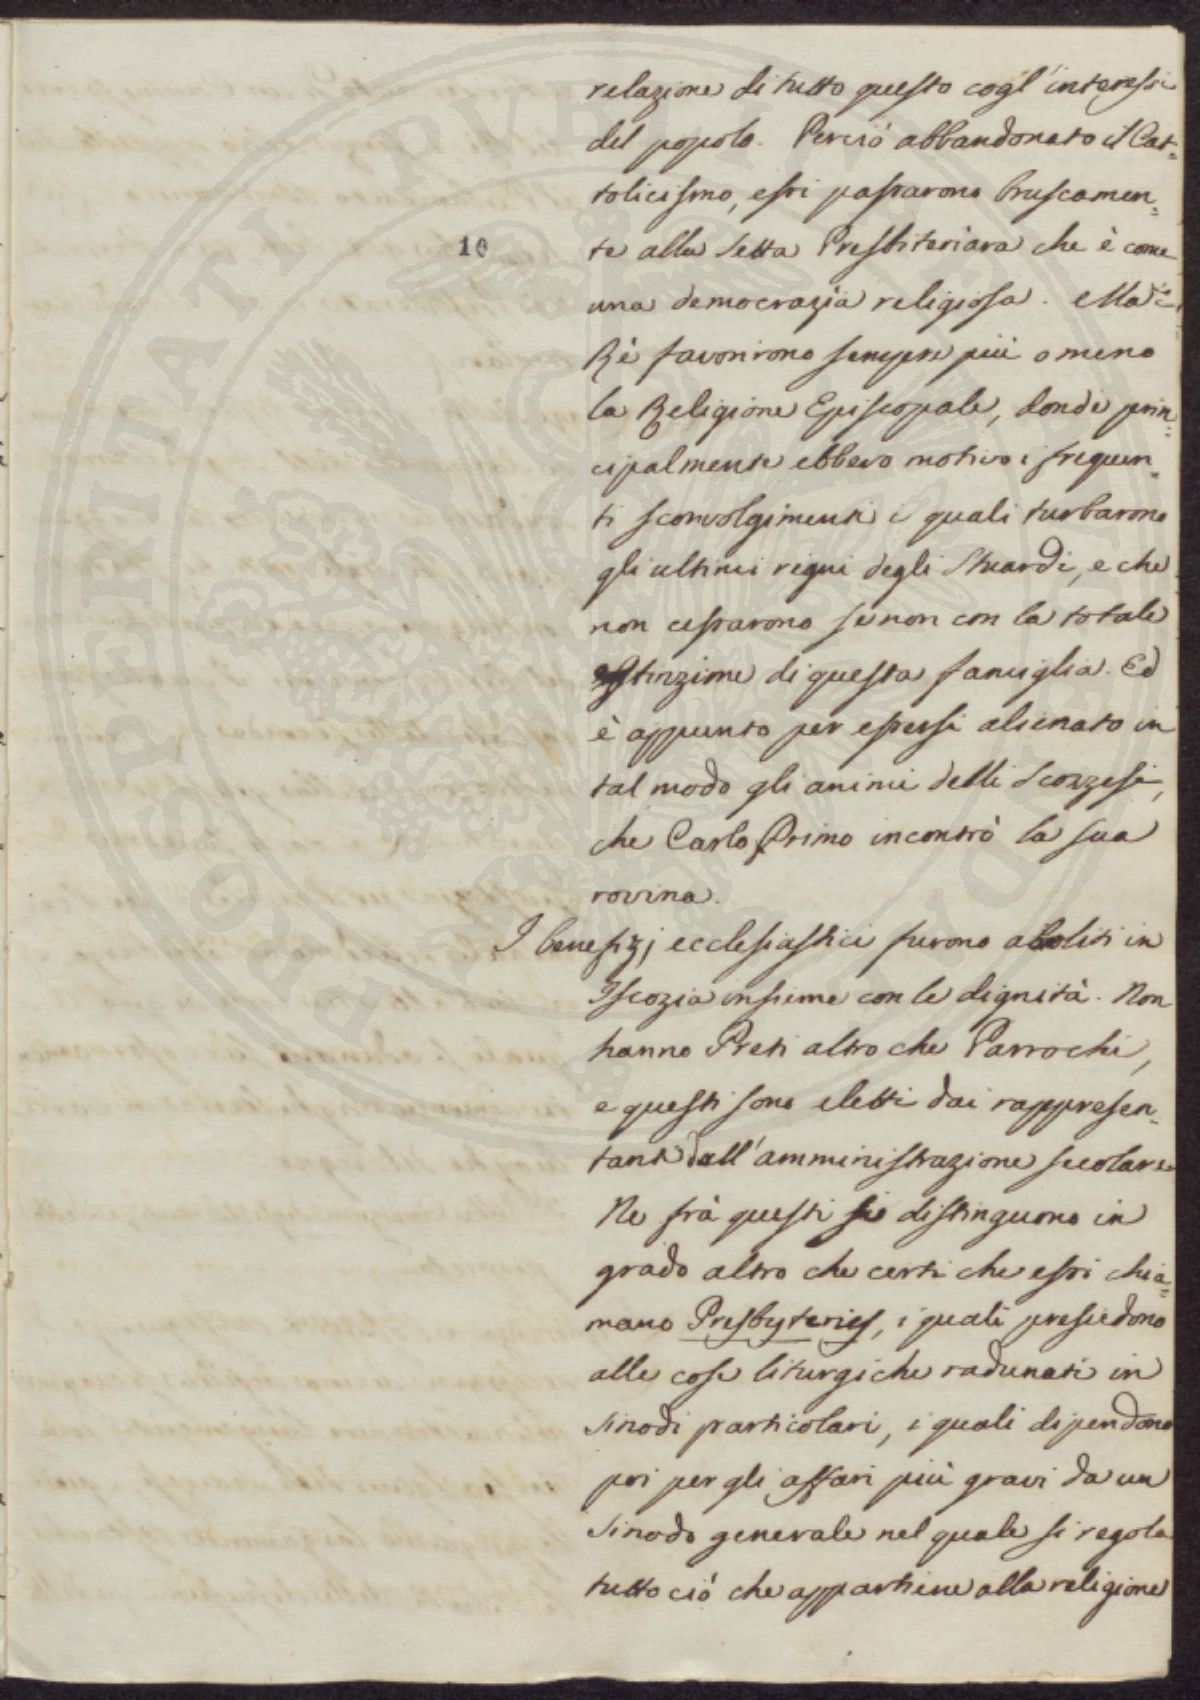 relazione di tutto questo cogl'interessi
del popolo. Perciò abbandonato il Cat=
tolicismo, essi passarono bruscamen=
10
te alla Setta Presbiteriara che è come
una democrazia religiosa. Ma i
Rè favorirono sempre più o meno
la Religione Episcopale, donde prin=
cipalmente ebbero motivo i frequen=
ti sconvolgimenti i quali turbarono
gli ultimi regni degli Stuardi, e che
non cessarono se non con la totale
estinzione di questa famiglia. Ed
è appunto per essersi alienato in
tal modo gli animi delli Scozzesi,
che Carlo Primo incontrò la sua
rovina.
I benefizj ecclesiastici furono aboliti in
Iscozia insieme con le dignità. Non
hanno Preti altro che Parrochi,
e questi sono eletti dai rappresen=
tanti dall'amministrazione secolare
Ne frà questi si distinguono in
grado altro che certi che essi chia=
mano Presbyteries, i quali presiedono
alle cose liturgiche radunati in
Sinodi particolari, i quali dipendono
poi per gli affari più gravi da un
Sinodo generale nel quale si regola
tutto ciò che appartiene alla religione
PROSPERITATI PVBLICAE